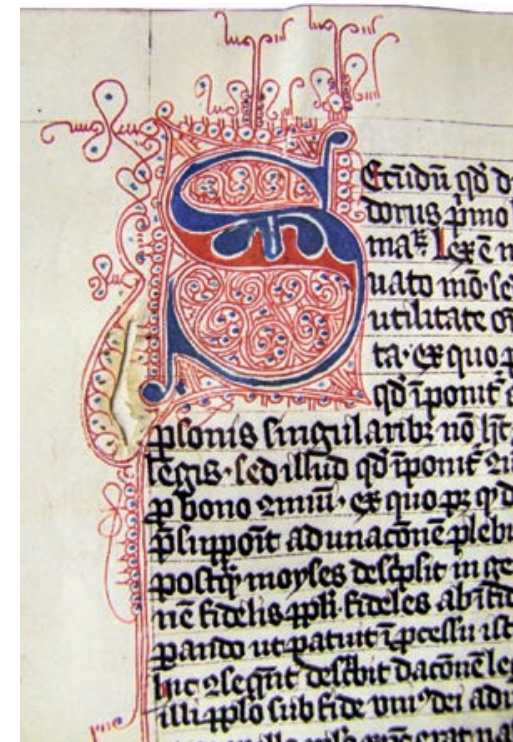 Secūdū qd̄ d
dorus p̄mo
maꝝ lex ē n
uato mō·se
utilitate
ta·ex quo p
qd̄ īponit᷑
ꝑsonis singularibꝫ nō ht̄
legis·sed illud qd̄ īponit᷑
ꝓ bono ꝯmuni·ex quo pꝫ qd̄
p̄suppoīt adunacōnē plebi
postqꝫ moyses descͥpsit in ge
nē fidelis ppl̄i·fideles ab īfid
parando ut patuit ī ꝓcessu ist
hic ꝯsequēt᷑ descͥbit dacōnē le
illi ppl̄o sub fide uniꝰ dei adu